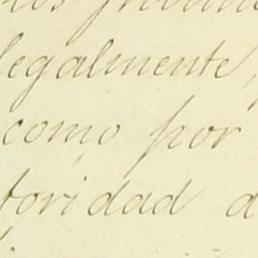 legalmente,
como por
toridad d